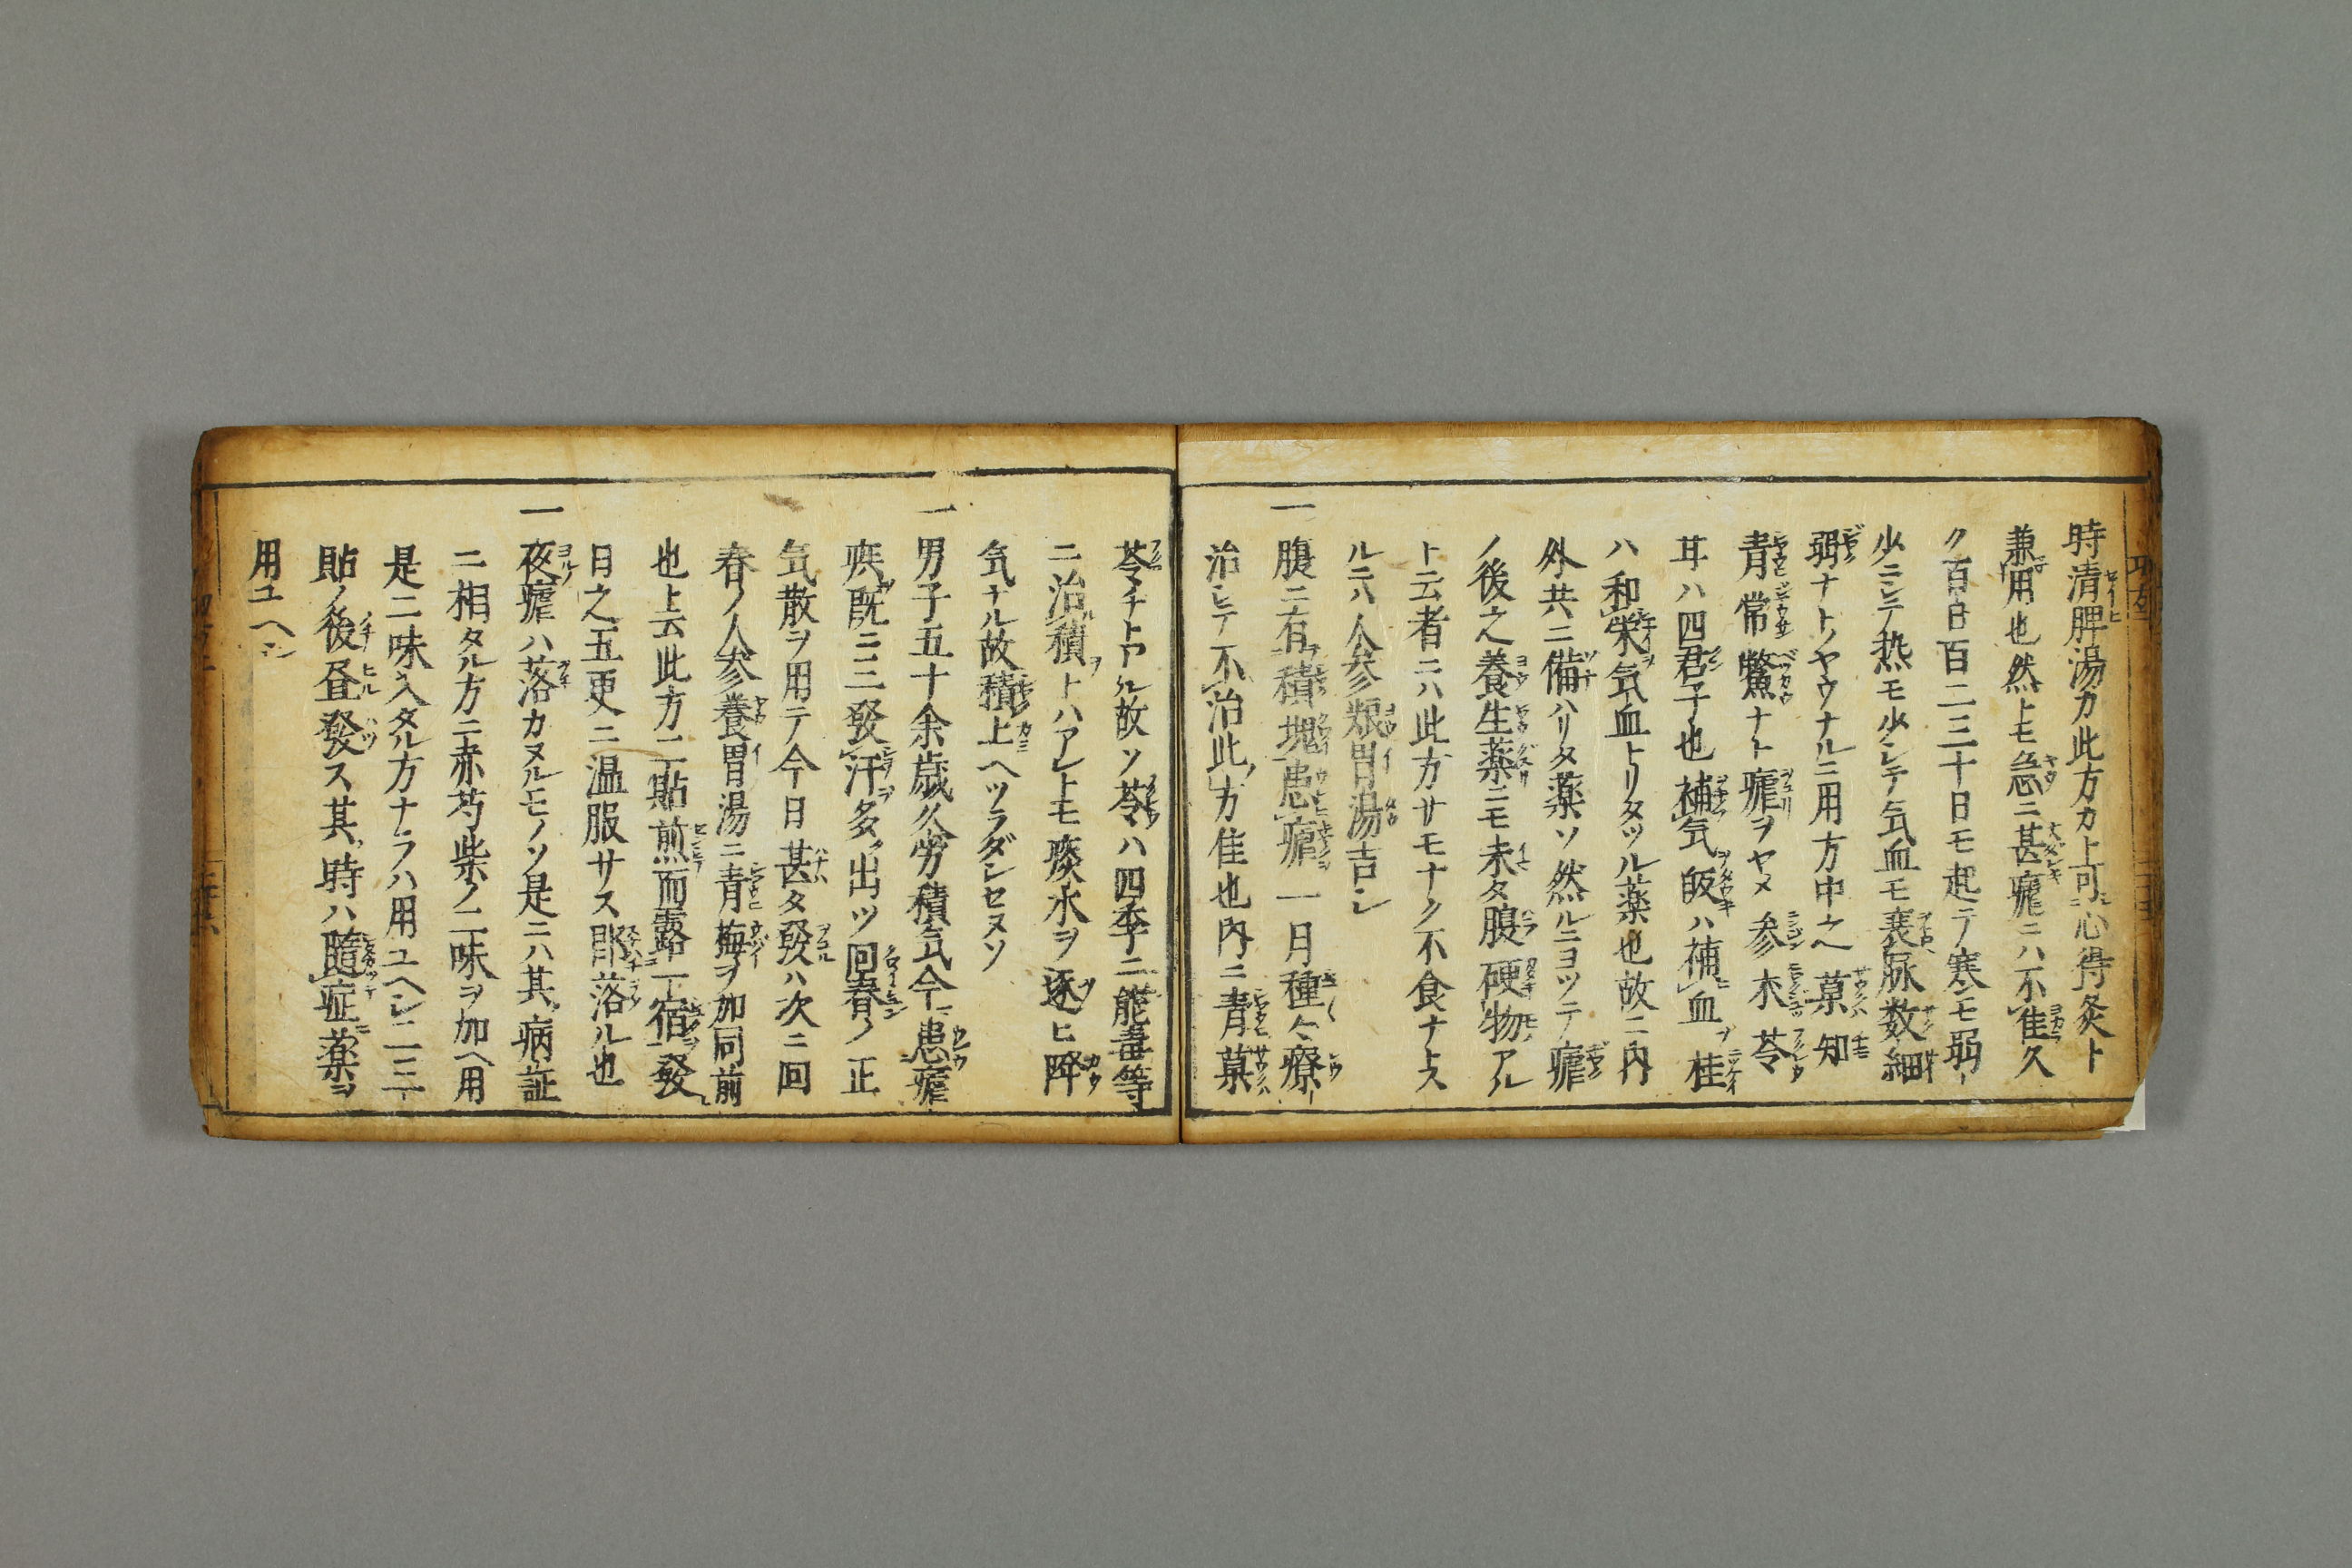 時清脾湯カ此方カト可心得灸ト
兼用也然トモ急ニ甚瘧ニハ不佳久
ク百日百二三十日モ起テ寒モ弱
少ニシテ熱モ少シテ気血モ衰脉数細
弱ナトノヤウナルニ用方中之菓知
青常鱉ナト瘧ヲヤメ参朮苓
耳ハ四君子也補気皈ハ補血桂
ハ和栄気血トリタツル薬也故ニ内
外共ニ備ハリタ薬ソ然ルニヨツテ瘧
ノ後之養生薬ニモ未タ腹硬物アル
ト云者ニハ此方サモナク不食ナトス
ルニハ人参養胃湯吉シ
一腹ニ有積塊患瘧一月種々療
治シテ不治此方佳也内ニ青菓
苓チトアル故ソ苓ハ四季ニ能毒等
ニ治積トハアレトモ痰水ヲ逐ヒ降
気ナル故積上ヘツラダシセヌソ
一男子五十余歳久労積気今患瘧
疾既ニ三發汗多出ツ回春ノ正
気散ヲ用テ今日甚タ發ハ次ニ回
春ノ人参養胃湯ニ青梅ヲ加同前
也上云此方二貼煎而露一宿發
日之五更ニ温服サス即落ル也
一夜瘧ハ落カヌルモノソ是ニハ其病証
ニ相タル方ニ赤芍柴ノ二味ヲ加ヘ用
是二味入タル方ナラハ用ユヘシ二三
貼ノ後昼發ス其時ハ随症薬ヲ
用ユヘシ